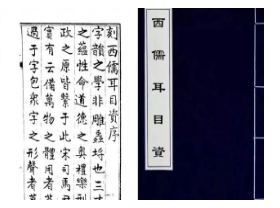 西儒耳目資
刻西儒耳目資序
字韻之學非雕蟲埒也三才
之蘊性命道德之奧禮樂刑
政之原皆繫于此宋司馬
實有云備萬物之體用者莫
過于字包衆字之形聲者莫